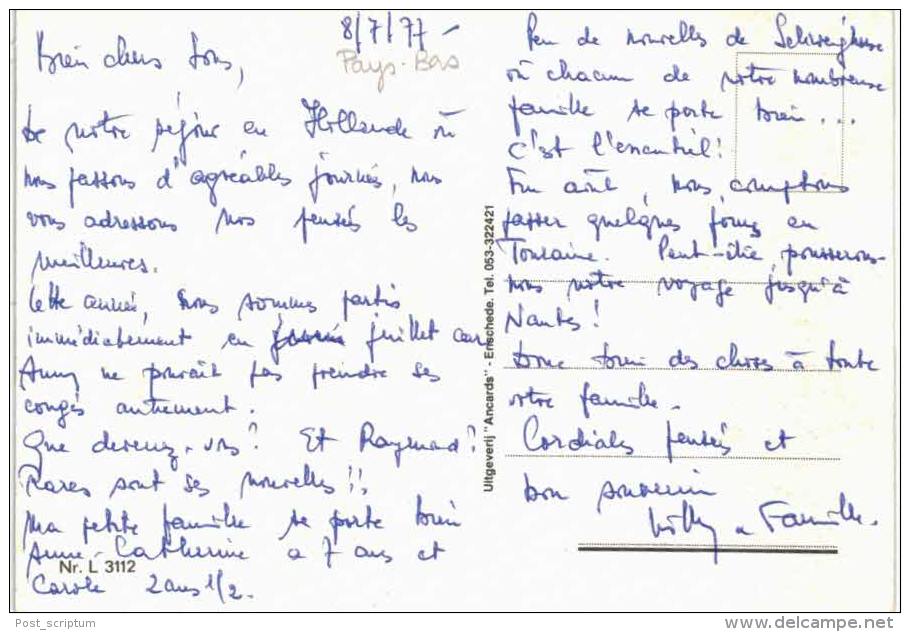 8/7/77 -
Pays-Bas
Bien chers tous,
De notre séjour en Hollande où
nous passons d'agréables journées, nous
vous adressons nos pensées les
meilleures.
Cette année, nous sommes partis
immédiatement en juillet car
Anny ne pouvait pas prendre ses
congés autrement.
Que devenez-vous? Et Raymond?
Rares sont ses nouvelles!!
Ma petite famille se porte bien
Anne-Catherine a 7 ans et
Carole 2 ans 1/2.
Nr. L 3112
Uitgeverij "Ancards" - Enschede. Tel. 053-322421
Peu de nouvelles de Schweighouse
où chacun de notre nombreuse
famille se porte bien...
c'est l'essentiel!
Fin août, nous comptons
passer quelques jours en
Touraine. Peut-être pousserons-
nous notre voyage jusqu'à
Nantes!
Donc bien des choses à toute
votre famille.
Cordiales pensées et
bon souvenir
Willy et Famille.
Post_scriptum
www.delcampe.net